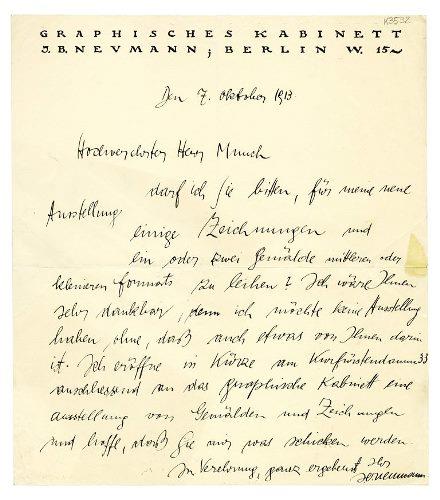 K3532
GRAPHISCHES KABINETT
J.B. NEVMANN; BERLIN W. 15~
Den 7. Oktober 1913
Hochverehrter Herr Munch
darf ich Sie bitten, für meine neue
Ausstellung
einige Zeichnungen und
ein oder zwei Gemälde mittleren oder
kleineren formats zu leihen? Ich wäre Ihnen
sehr dankbar, denn ich möchte keine Ausstellung
haben, ohne, daß auch etwas von Ihnen darin
ist. Ich eröffne in Kürze am Kurfürstendamm 33
anschliessend an das graphische Kabinett eine
ausstellung von Gemälden und Zeichnungen
und hoffe, daß Sie mir was schicken werden.
In Verehrung, ganz ergebenst Ihr
JBNeumann